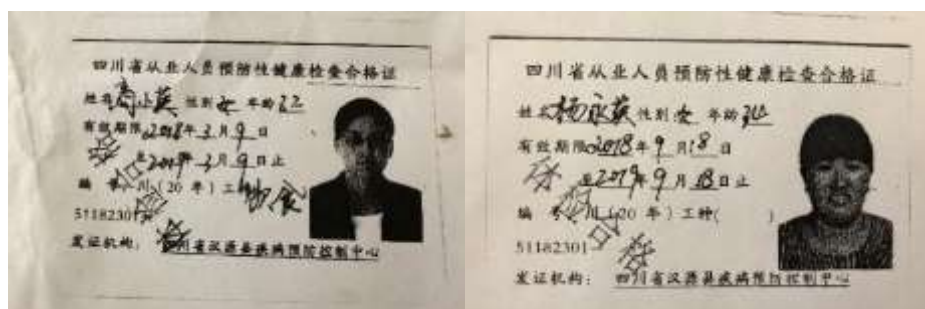 四川省从业人员预防性健康检查合格证
姓名 小英 性别 女 年龄
有效期限 2018年3月9日
至2019年3月9日止
编号 川(20 年)工
51182301
发证机构: 四川省汉源县疾病预防控制中心
四川省从业人员预防性健康检查合格证
姓名 杨永英 性别 女 年龄
有效期限 2018年9月18日
至2019年9月18日止
编号 川(20 年)工种( )
51182301
发证机构: 四川省汉源县疾病预防控制中心